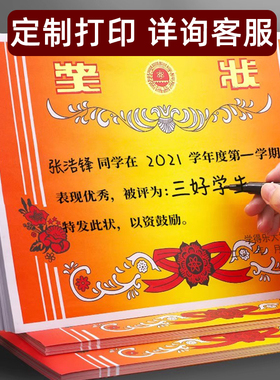 定制打印 详询客服
奖状
张浩锋同学在 2021 学年度第一学期
表现优秀，被评为：三好学生
特发此状，以资鼓励。